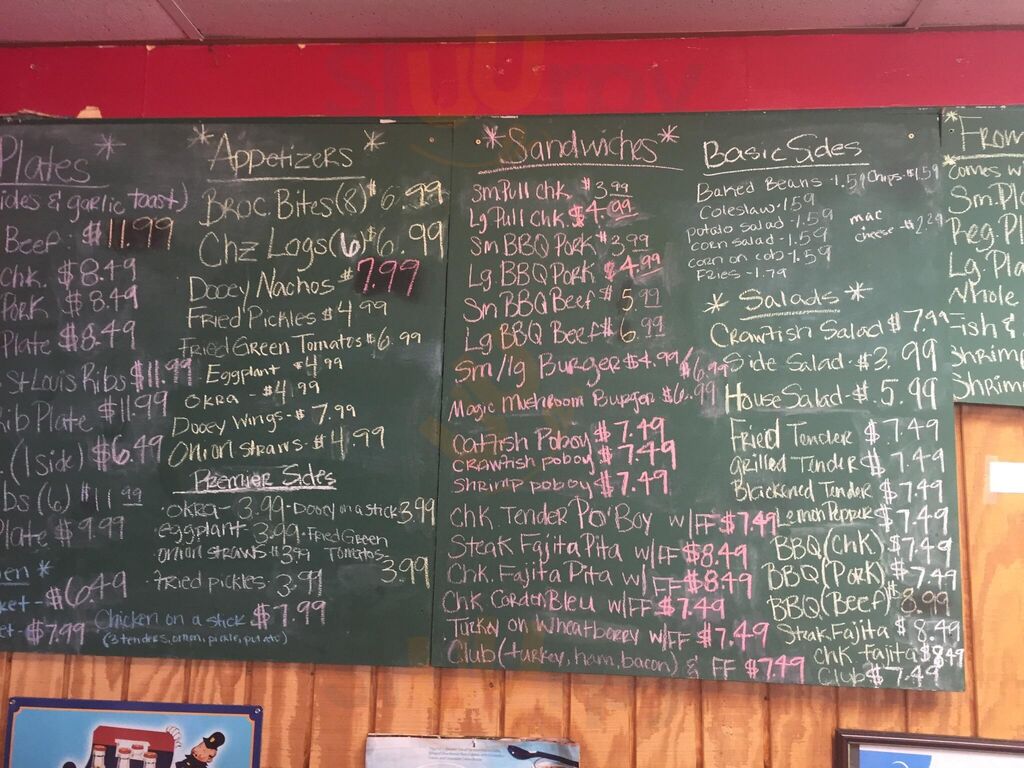 Plates
& garlic toast)
Beef. $11.99
Chk. $8.49
Pork $8.49
Plate $8.49
St Louis Ribs $11.99
Rib Plate $11.99
(1 side) $6.49
(6) $11.99
Plate $9.99
$6.49
$7.99
Chicken on a stick $7.99
(3 tenders, onion, pickle, potato)
* Appetizers *
Broc. Bites (8) $6.99
Chz Logs (6) $6.99
Dooey Nachos $7.99
Fried Pickles $4.99
Fried Green Tomatos $6.99
Eggplant $4.99
OKRA - $4.99
Dooey Wings - $7.99
Onion Straws - $4.99
Premier Sides
OKRA - 3.99 · Dooey on a stick 3.99
eggplant 3.99 · Fried Green
onion straws $3.99 Tomatos 3.99
fried pickles 3.99
* Sandwiches *
Sm Pull Chk. $3.99
Lg Pull Chk $4.99
Sm BBQ Pork $3.99
Lg BBQ Pork $4.99
Sm BBQ Beef $5.99
Lg BBQ Beef $6.99
Sm/lg Burger $4.99/$6.99
Magic Mushroom Burger $6.99
Catfish Poboy $7.49
Crawfish poboy $7.49
Shrimp poboy $7.49
Chk Tender Po'Boy w/FF $7.49
Steak Fajita Pita w/FF $8.49
Chk. Fajita Pita w/FF $8.49
Chk Cordon Bleu w/FF $7.49
Turkey on Wheatberry w/FF $7.49
Club (turkey, ham, bacon) & FF $7.49
Basic Sides
Baked Beans - 1.59 Chips - $1.59
Coleslaw - 1.59
potato salad - 1.59
mac
cheese - $2.29
corn salad - 1.59
corn on cob - 1.59
Fries - 1.79
* Salads *
Crawfish Salad $7.99
Side Salad - $3.99
House Salad - $5.99
Fried Tender $7.49
Grilled Tender $7.49
Blackened Tender $7.49
Lemon Pepper $7.49
BBQ (Chk) $7.49
BBQ (Pork) $7.49
BBQ (Beef) $8.99
Steak Fajita $8.49
Chk Fajita $8.49
Club $7.49
From
Comes w
Sm. Pla
Reg. Pl
Lg. Pla
Whole
Fish &
Shrimp
Shrim